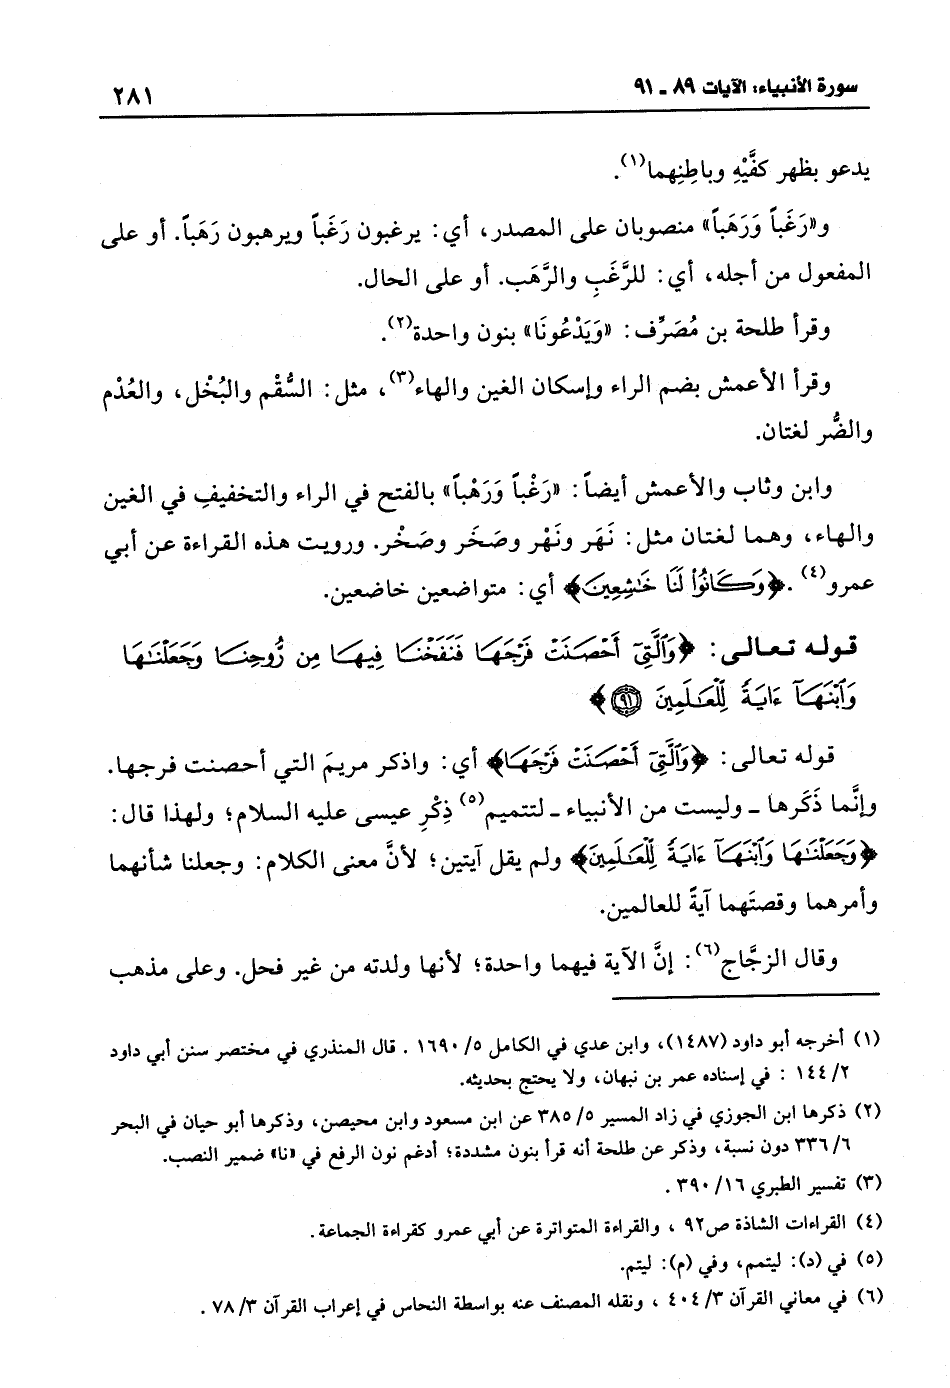 سورة الأنبياء: الآيات ٨٩ ـ ٩١
٢٨١
يدعو بظهر كفَّيْهِ وباطِنِهما(١).
و«رَغَباً وَرَهَباً» منصوبان على المصدر، أي: يرغبون رَغَباً ويرهبون رَهَباً. أو على
المفعول من أجله، أي: للرَّغَبِ والرَّهَب. أو على الحال.
وقرأ طلحة بن مُصَرِّف: «وَيَدْعُونَا» بنون واحدة(٢).
وقرأ الأعمش بضم الراء وإسكان الغين والهاء(٣)، مثل: السُّقْم والبُخْل، والعُدْم
والضُّر لغتان.
وابن وثاب والأعمش أيضاً: «رَغْباً وَرَهْباً» بالفتح في الراء والتخفيفِ في الغين
والهاء، وهما لغتان مثل: نَهَر ونَهْر وصَخَر وصَخْر. ورويت هذه القراءة عن أبي
عمرو(٤). ﴿وَكَانُوا۟ لَنَا خَـٰشِعِينَ﴾ أي: متواضعين خاضعين.
قوله تعالى: ﴿وَٱلَّتِىٓ أَحْصَنَتْ فَرْجَهَا فَنَفَخْنَا فِيهَا مِن رُّوحِنَا وَجَعَلْنَـٰهَا
وَٱبْنَهَآ ءَايَةً لِّلْعَـٰلَمِينَ ٩١﴾
قوله تعالى: ﴿وَٱلَّتِىٓ أَحْصَنَتْ فَرْجَهَا﴾ أي: واذكر مريمَ التي أحصنت فرجها.
وإنَّما ذَكَرها ـ وليست من الأنبياء ـ لتتميم(٥) ذِكْرِ عيسى عليه السلام؛ ولهذا قال:
﴿وَجَعَلْنَـٰهَا وَٱبْنَهَآ ءَايَةً لِّلْعَـٰلَمِينَ﴾ ولم يقل آيتين؛ لأنَّ معنى الكلام: وجعلنا شأنهما
وأمرهما وقصتَهما آيةً للعالمين.
وقال الزجَّاج(٦): إنَّ الآية فيهما واحدة؛ لأنها ولدته من غير فحل. وعلى مذهب
(١) أخرجه أبو داود (١٤٨٧)، وابن عدي في الكامل ٥/ ١٦٩٠. قال المنذري في مختصر سنن أبي داود
٢/ ١٤٤ : في إسناده عمر بن نبهان، ولا يحتج بحديثه.
(٢) ذكرها ابن الجوزي في زاد المسير ٥/ ٣٨٥ عن ابن مسعود وابن محيصن، وذكرها أبو حيان في البحر
٦/ ٣٣٦ دون نسبة، وذكر عن طلحة أنه قرأ بنون مشددة؛ أدغم نون الرفع في «نا» ضمير النصب.
(٣) تفسير الطبري ١٦/ ٣٩٠ .
(٤) القراءات الشاذة ص٩٢ ، والقراءة المتواترة عن أبي عمرو كقراءة الجماعة.
(٥) في (د): ليتمم، وفي (م): ليتم.
(٦) في معاني القرآن ٣/ ٤٠٤ ، ونقله المصنف عنه بواسطة النحاس في إعراب القرآن ٣/ ٧٨ .